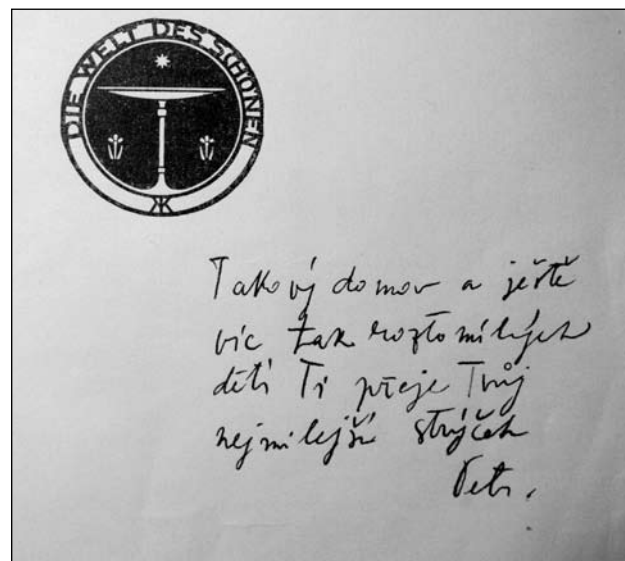 DIE WELT DES SCHÖNEN
Takový domov a ještě
víc tak roztomilých
dětí Ti přeje Tvůj
nejmilejší strýček
Petr.